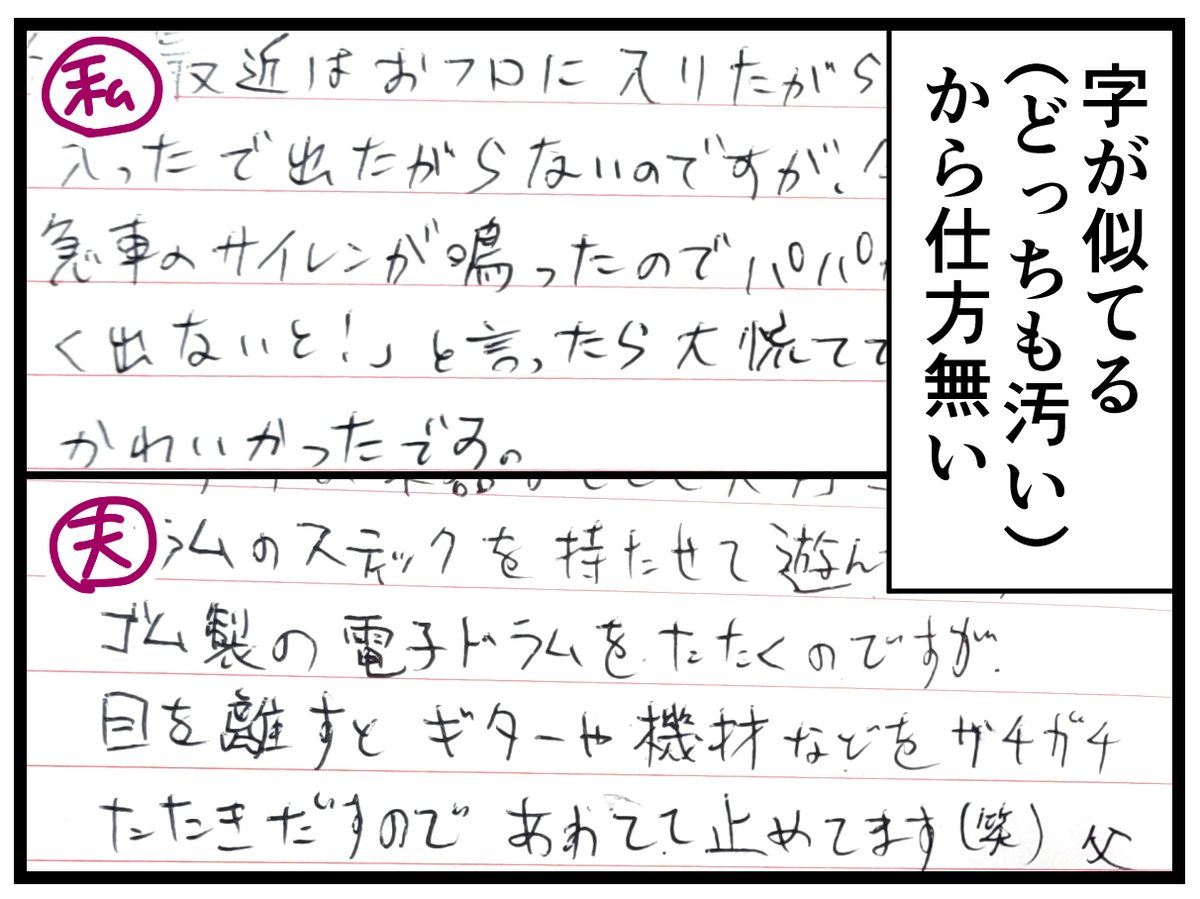 字が似てる
(どっちも汚い)
から仕方無い
私
最近はおフロに入りたがら
入ったで出たがらないのですが、
急車のサイレンが鳴ったのでパパ
く出ないと!」と言ったら大慌てて
かわいかったです。
夫
ラムのスティックを持たせて遊ん
ゴム製の電子ドラムをたたくのですが、
目を離すとギターや機材などをガチガチ
たたきだすのであわてて止めてます(笑)父